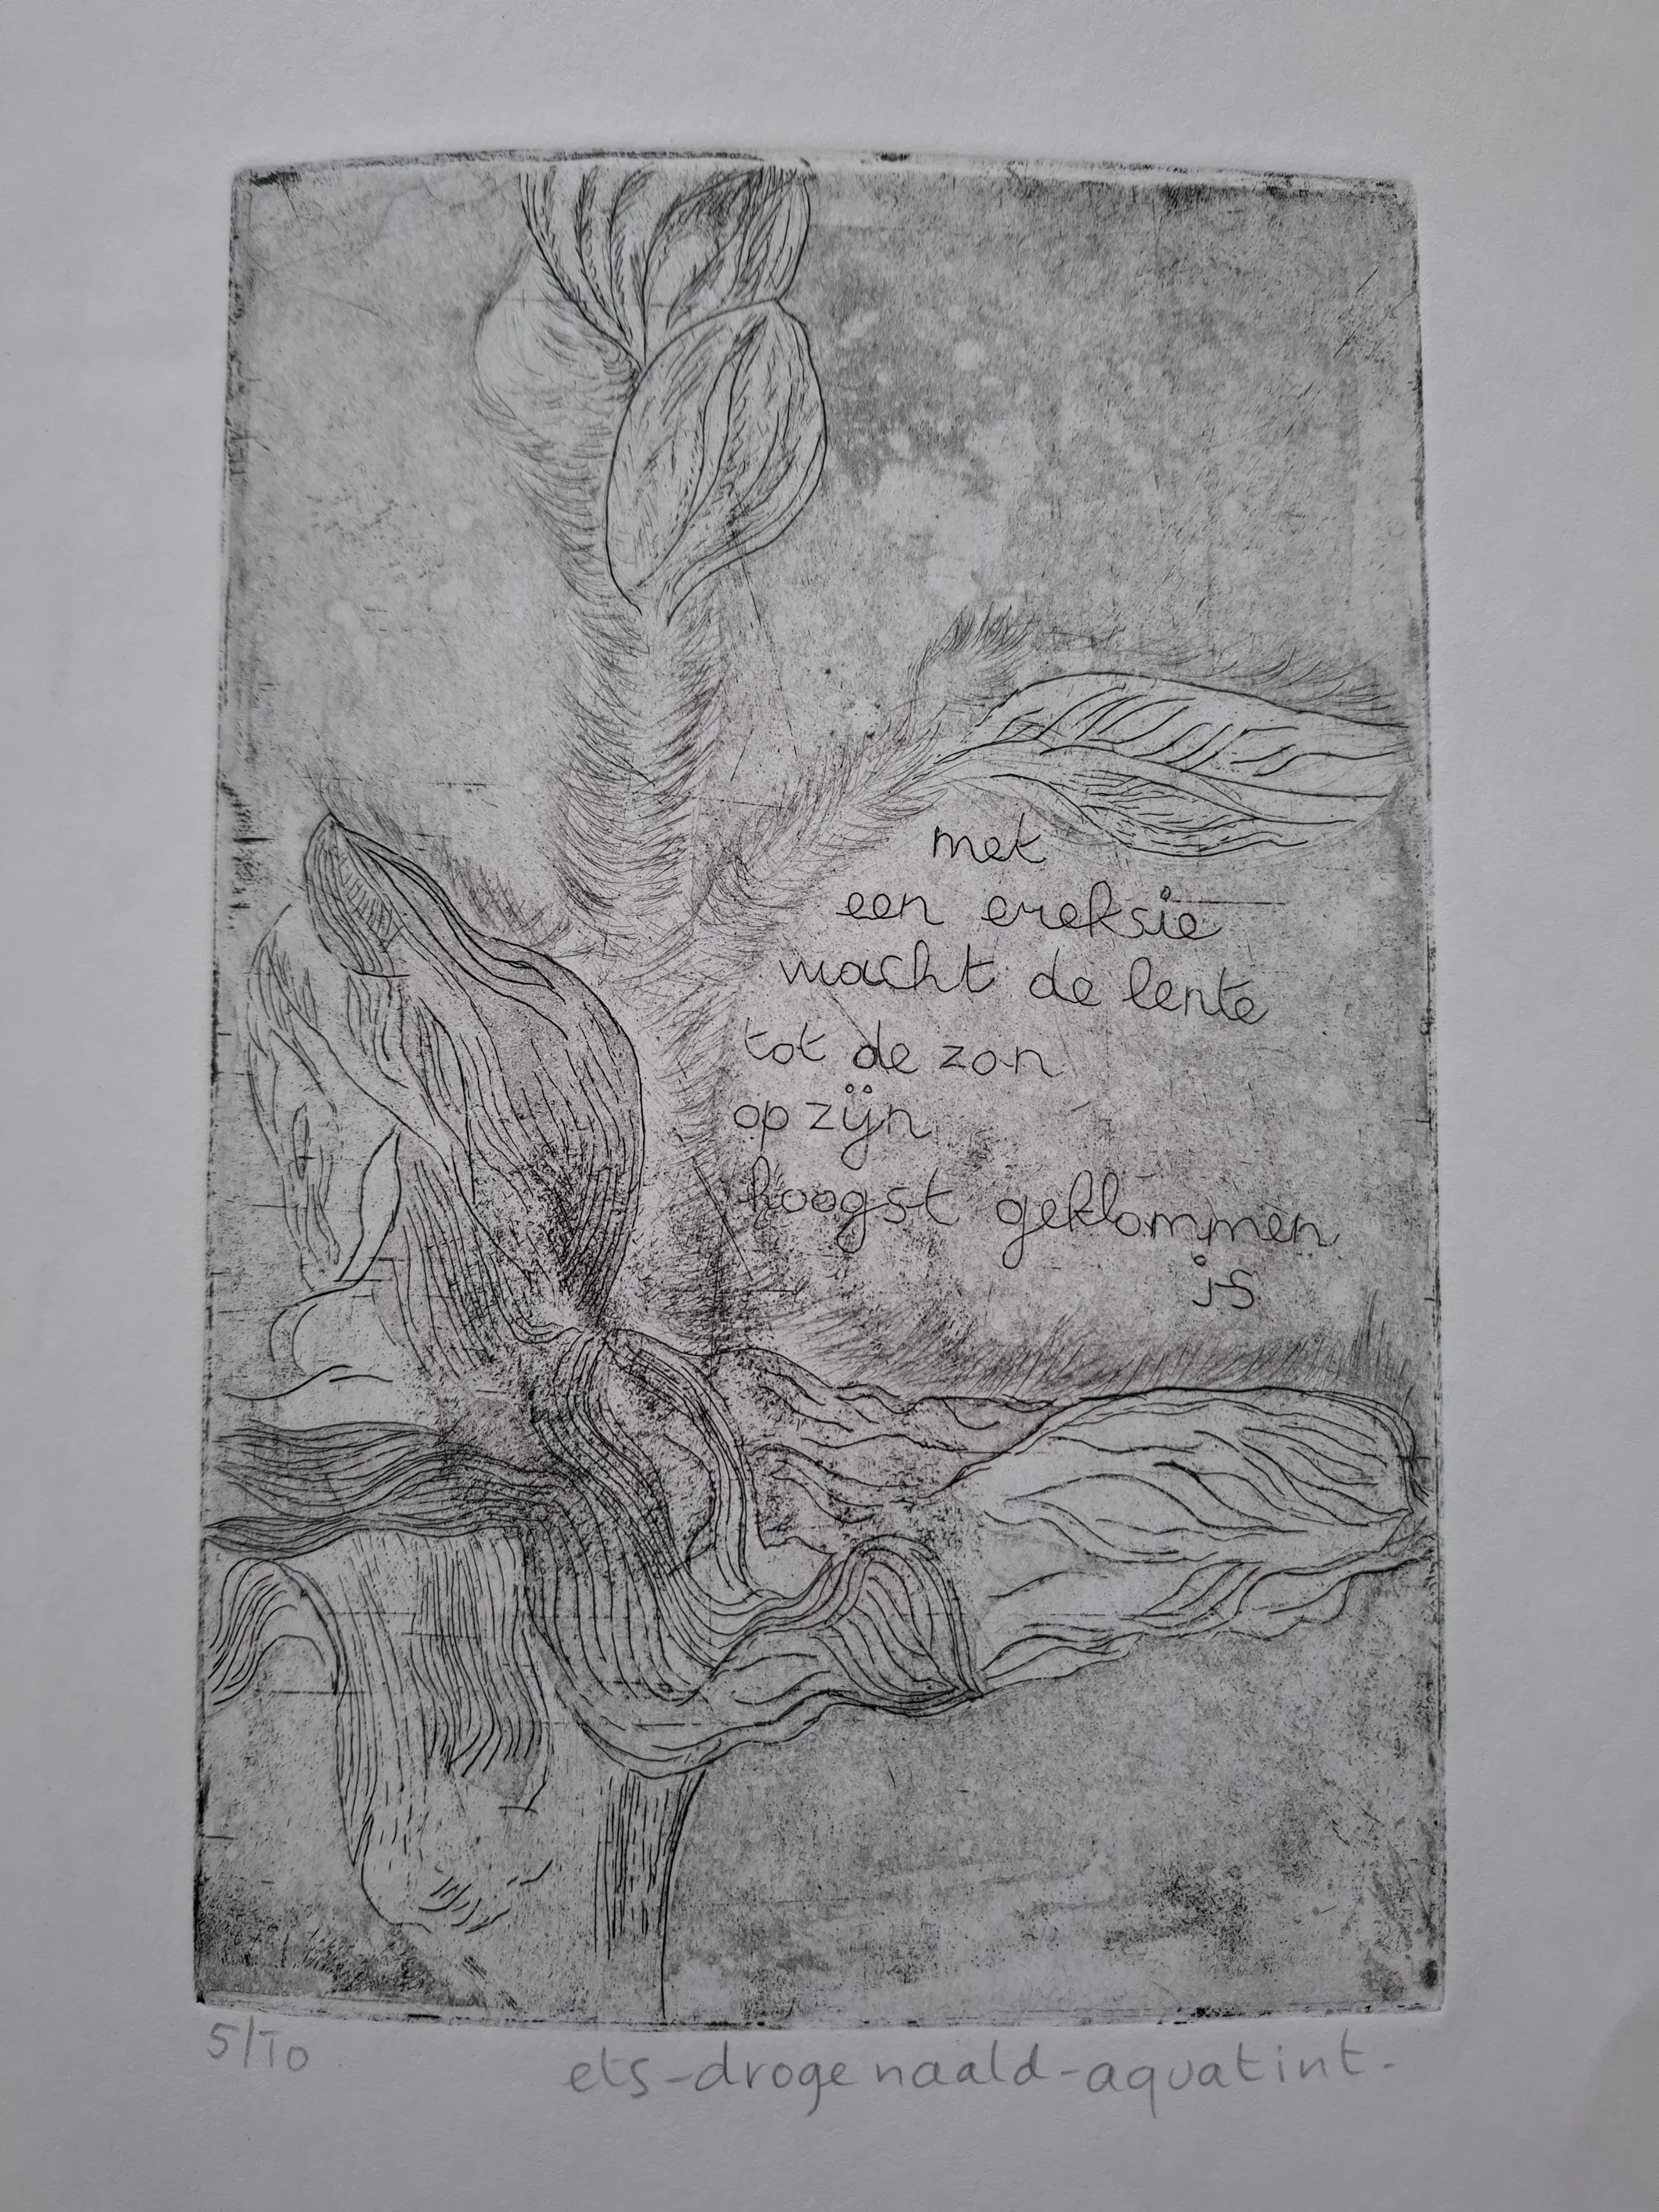 met
een ereksie
wacht de lente
tot de zon
op zijn
hoogst geklommen
js
5/10
ets-droge naald-aquatint-